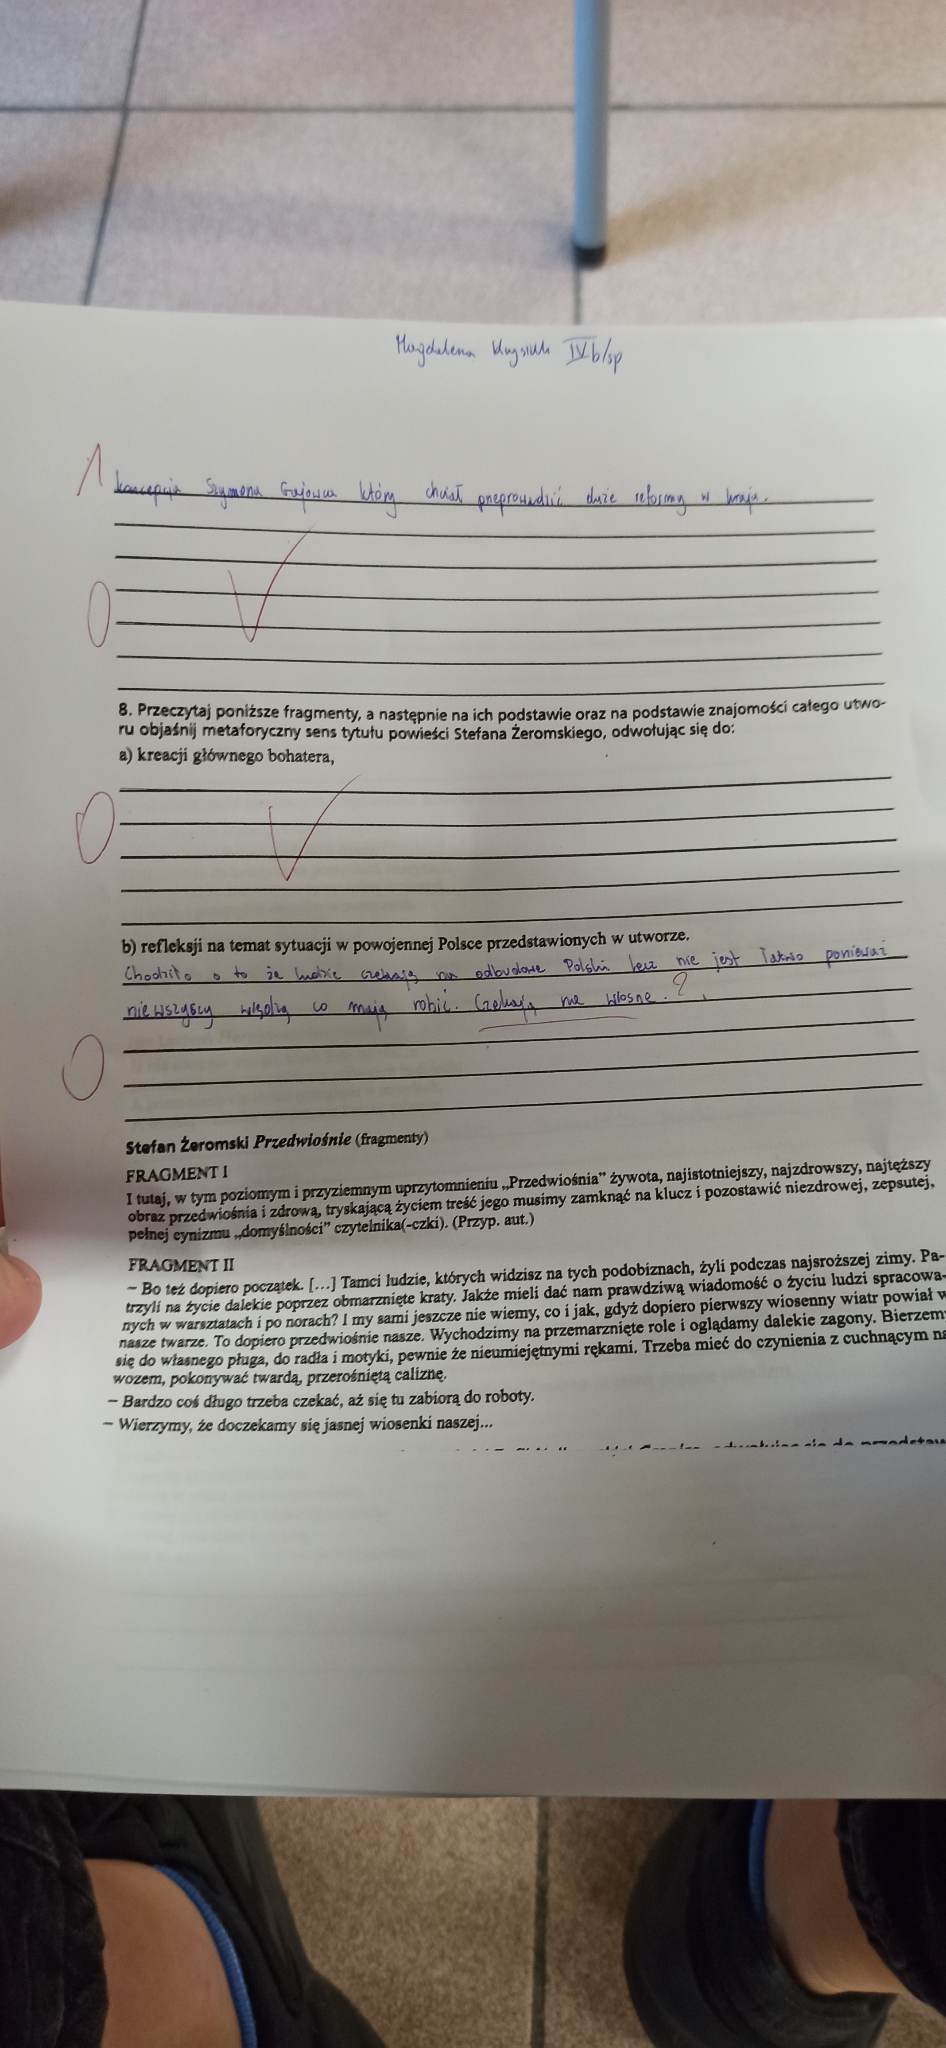 Magdalena IVb/sp
1
koncepcja Szymona Gajowca który chciał przeprowadzić duże reformy w kraju.
0
8. Przeczytaj poniższe fragmenty, a następnie na ich podstawie oraz na podstawie znajomości całego utwo-
ru objaśnij metaforyczny sens tytułu powieści Stefana Żeromskiego, odwołując się do:
a) kreacji głównego bohatera,
0
b) refleksji na temat sytuacji w powojennej Polsce przedstawionych w utworze.
Chodziło o to że ludzie czekają na odbudowe Polski lecz nie jest łatwo ponieważ
niewszyscy wiedzą co mają robić. Czekają na wiosne. ?
0
Stefan Żeromski Przedwiośnie (fragmenty)
FRAGMENT I
I tutaj, w tym poziomym i przyziemnym uprzytomnieniu „Przedwiośnia" żywota, najistotniejszy, najzdrowszy, najtęższy
obraz przedwiośnia i zdrową, tryskającą życiem treść jego musimy zamknąć na klucz i pozostawić niezdrowej, zepsutej,
pełnej cynizmu „domyślności" czytelnika(-czki). (Przyp. aut.)
FRAGMENT II
– Bo też dopiero początek. [...] Tamci ludzie, których widzisz na tych podobiznach, żyli podczas najsroższej zimy. Pa-
trzyli na życie dalekie poprzez obmarznięte kraty. Jakże mieli dać nam prawdziwą wiadomość o życiu ludzi spracowa-
nych w warsztatach i po norach? I my sami jeszcze nie wiemy, co i jak, gdyż dopiero pierwszy wiosenny wiatr powiał w
nasze twarze. To dopiero przedwiośnie nasze. Wychodzimy na przemarznięte role i oglądamy dalekie zagony. Bierzem
się do własnego pługa, do radła i motyki, pewnie że nieumiejętnymi rękami. Trzeba mieć do czynienia z cuchnącym na
wozem, pokonywać twardą, przerośniętą caliznę.
– Bardzo coś długo trzeba czekać, aż się tu zabiorą do roboty.
– Wierzymy, że doczekamy się jasnej wiosenki naszej...